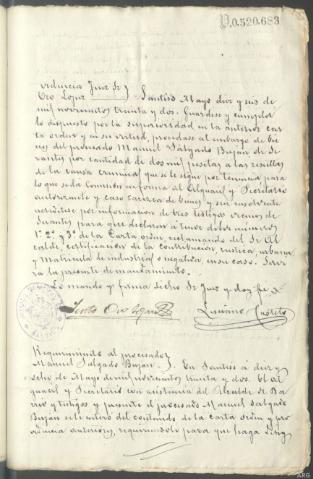 D.0.520.683
videncia Juez Sr. J. Santiso Mayo diez y seis de
mil novecientos treinta y dos. Guardese y cumplase
lo dispuesto por la superioridad en la anterior car
ta orden y en su virtud, procedase al embargo de bie
nes del procesado Manuel Salgado Buján de
por cantidad de dos mil pesetas a las resultas
de la causa criminal que se le sigue por tenencia para
lo que se da comisión en forma al Alguacil y Secretario
autorizante y caso carezca de bienes y sea insolvente
por información de tres testigos vecinos de
para que declaren a tenor de los números
1º 2º y 3º de la Carta orden reclamando del Sr Al
calde, certificación de la contribución rustica, urbana
y Matricula de industrial o negativa en su caso. Sirva
la presente de mandamiento.
Lo mando y firma dicho Sr Juez y doy fe
Luciano
Requerimiento al procesado
Manuel Salgado Buján. En Santiso a diez y
ocho de Mayo de mil novecientos treinta y dos. El Al
guacil y Secretario con asistencia del Alcalde de Ba
rrio y testigos y presente el procesado Manuel Salgado
Buján se le enteró del contenido de la carta orden y pro
videncia anteriores, requiriendole para que haga
ARG